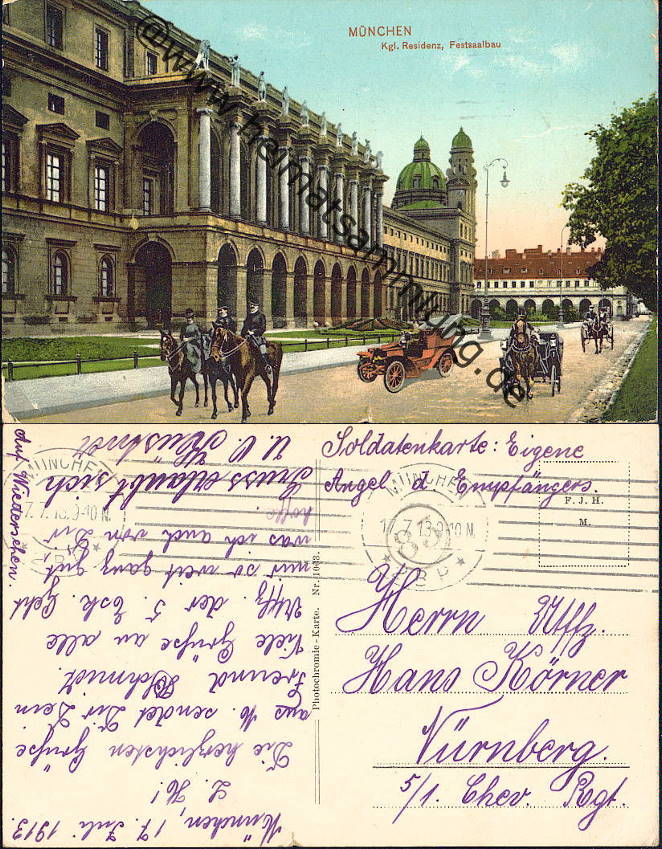 MÜNCHEN
Kgl. Residenz, Festsaalbau
© www.heimatsammlung.de
Soldatenkarte: Eigene
Angel d. Empfängers.
F. J. H.
M.
MÜNCHEN
17.7.13.9-10N.
Herrn Uffz.
Hans Körner
Nürnberg.
5/1. Chev. Rgt.
Photochromie-Karte. Nr. 1043.
München, 17. Juli 1913.
L. H!
Die herzlichsten Grüße
aus M. sendet Dir Dein
Freund Schmidt.
Viele Grüße an alle
Uffz. der 5. Esk. Geht
mir so weit ganz gut
was ich auch von Dir
hoffe.
Gruss erlaubt sich
Auf Wiedersehen.
MÜNCHEN
17.7.13.9-10N.